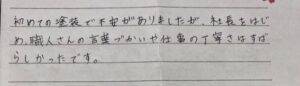 初めての塗装で不安がありましたが、社長をはじ
め、職人さんの言葉づかいや仕事の丁寧さはすば
らしかったです。